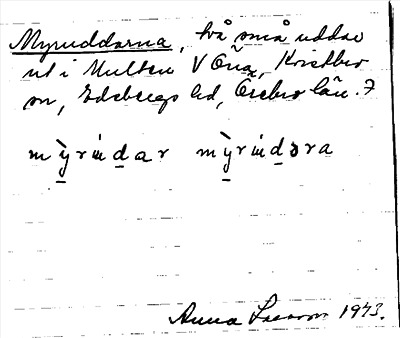 Myruddarna, två små uddar
ut i Multen V Öna, Kristber
on, Edsbergs hd, Örebro län. 7
mỳrúdar mỳrúdəra
Anna Larsson 1973.